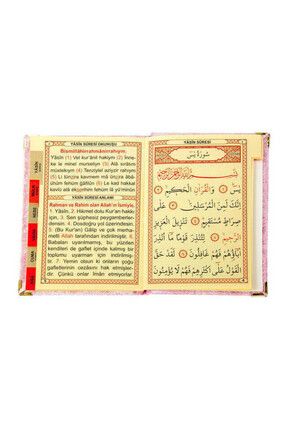 YÂSÎN SÛRESİ OKUNUŞU
Bismillâhirrahmânirrahîym.
Yâsîn (1) Vel kur'ânil hakîym (2) İnne-
ke le minel murselîyn (3) Alâ sırâtım
müstekıym (4) Tenzîylel azîyzir rahîym
(5) Li tünzira kavmem mâ ünzira âbâ-
ühüm fehüm ğâfilûn (6) Le kad hakkal
kavlü alâ ekserihim fehüm lâ yü'minûn
YÂSÎN SÛRESİ ANLAMI
Rahman ve Rahim olan Allah'ın İsmiyle.
1. Yâsîn, 2. Hikmet dolu Kur'an hakkı
için, 3. Sen şüphesiz peygamberler-
densin. 4. Dosdoğru yol üzerindesin.
5. (Bu Kur'an) Gâlip ve çok merha-
metli Allah tarafından indirilmiştir. 6.
Babaları uyarılmamış, bu yüzden
kendileri de gaflet içinde kalmış bir
toplumu uyarman için indirilmiştir.
7. Yemin olsun ki onların çoğu
gafletlerinin cezasını hak etmişler-
dir. Çünkü onlar îman etmiyorlar.
YÂSÎN SÛRESİ
سُورَةُ يٰسٓ
بِسْمِ اللّٰهِ الرَّحْمٰنِ الرَّحِيمِ
يٰسٓ ۝ وَالْقُرْاٰنِ الْحَكِيمِ ۝
اِنَّكَ لَمِنَ الْمُرْسَلِينَ ۝ عَلٰى
صِرَاطٍ مُسْتَقِيمٍ ۝ تَنْزِيلَ الْعَزِيزِ
الرَّحِيمِ ۝ لِتُنْذِرَ قَوْمًا مَٓا اُنْذِرَ
اٰبَٓاؤُهُمْ فَهُمْ غَافِلُونَ ۝ لَقَدْ حَقَّ
الْقَوْلُ عَلٰٓى اَكْثَرِهِمْ فَهُمْ لَا يُؤْمِنُونَ